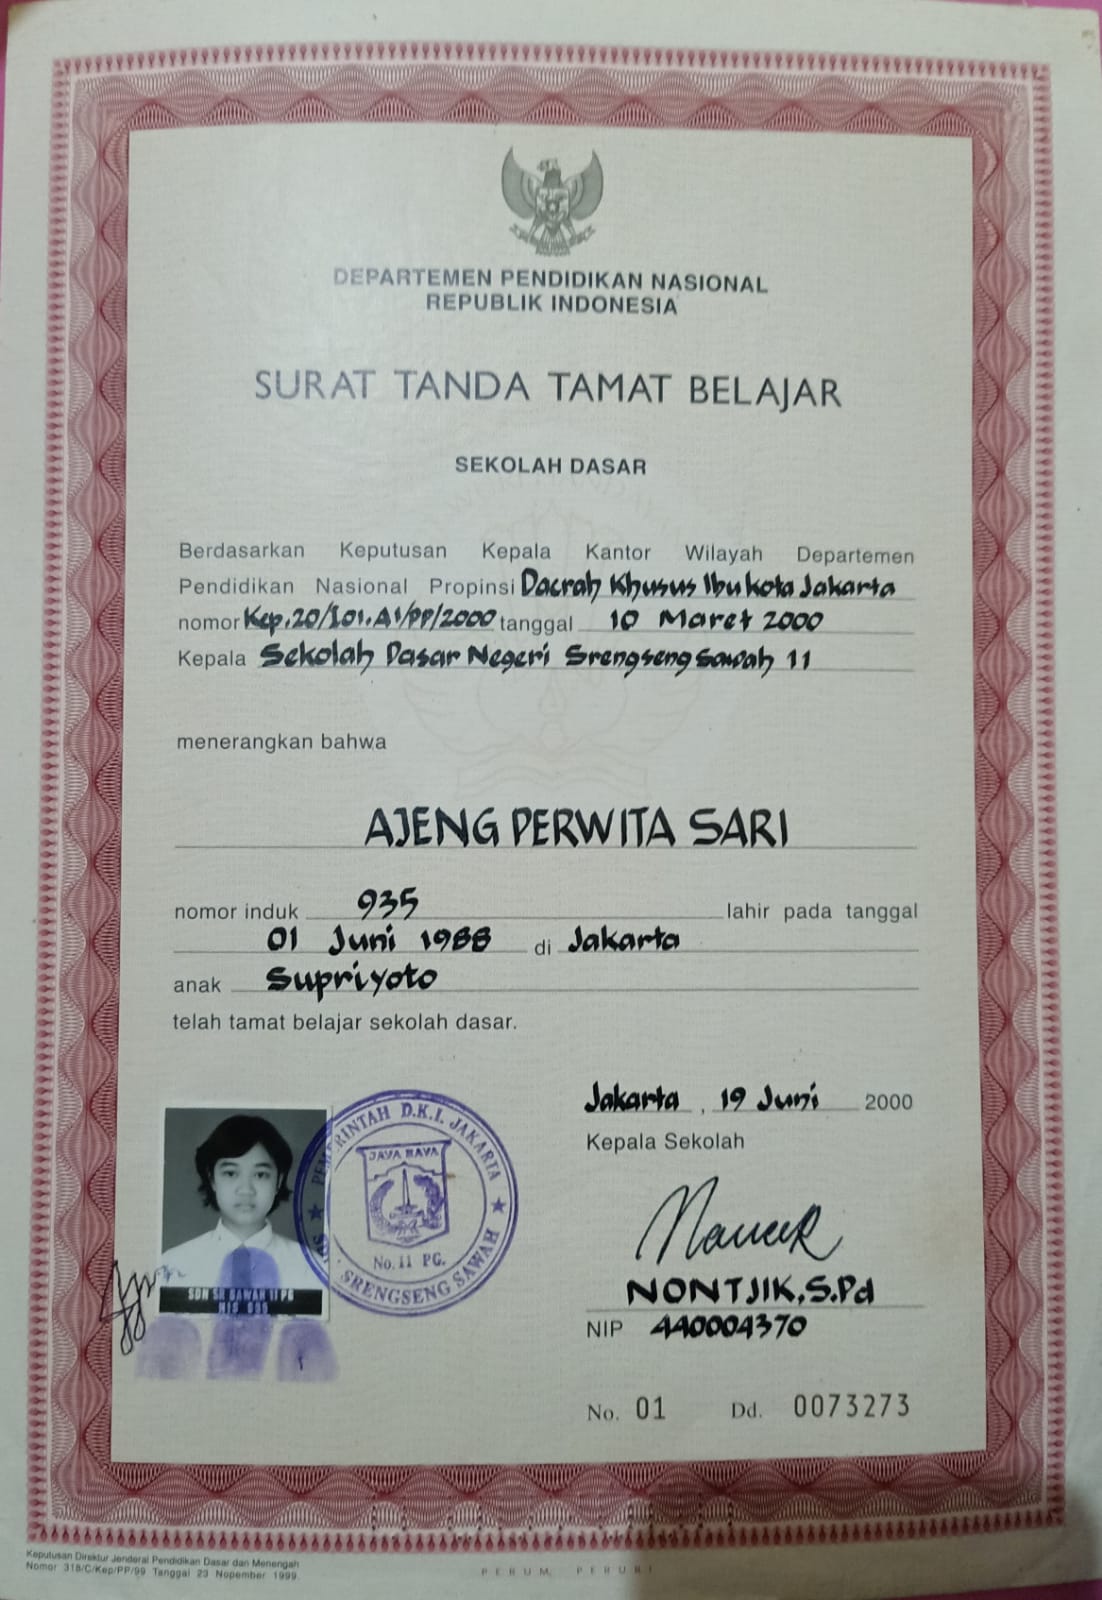 DEPARTEMEN PENDIDIKAN NASIONAL
REPUBLIK INDONESIA
SURAT TANDA TAMAT BELAJAR
SEKOLAH DASAR
Berdasarkan Keputusan Kepala Kantor Wilayah Departemen
Pendidikan Nasional Propinsi Daerah Khusus Ibukota Jakarta
nomor Kep.20/I01.A1/PP/2000 tanggal 10 Maret 2000
Kepala Sekolah Dasar Negeri Srengseng Sawah 11
menerangkan bahwa
AJENG PERWITA SARI
nomor induk 935 lahir pada tanggal
01 Juni 1988 di Jakarta
anak Supriyoto
telah tamat belajar sekolah dasar.
Jakarta, 19 Juni 2000
Kepala Sekolah
PEMERINTAH D.K.I. JAKARTA
JAYA RAYA
No.11 PG.
SRENGSENG SAWAH
NONTJIK, S.Pd
NIP 440004370
No. 01 Dd. 0073273
Keputusan Direktur Jenderal Pendidikan Dasar dan Menengah
Nomor 318/C/Kep/PP/99 Tanggal 23 Nopember 1999.
PERUM PERURI